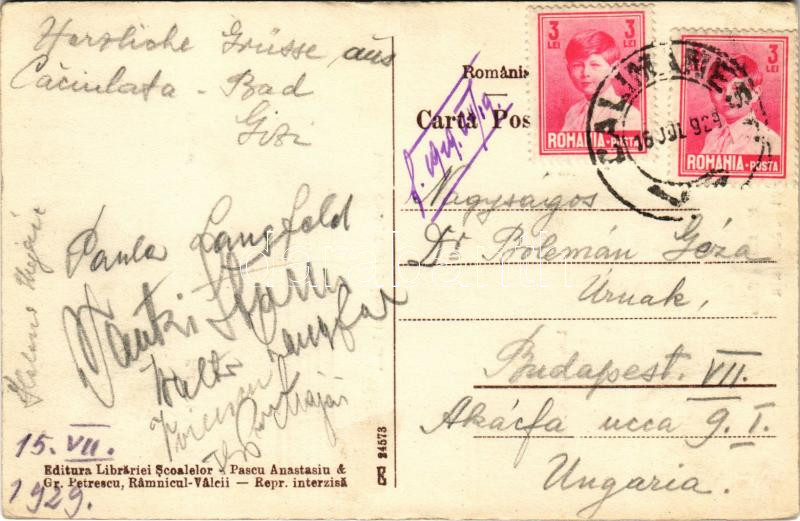 Herzliche Grüsse aus
Căciulata - Bad
Gizi
Paula Langfeld
Walter Langfel
15. VII.
1929.
Editura Librăriei Școalelor - Pascu Anastasiu &
Gr. Petrescu, Râmnicul-Vâlcii — Repr. interzisă
24573
Românis
Carta Pos
1929. VII/19.
3 LEI
ROMANIA-POSTA
3 LEI
ROMANIA-POSTA
CALIMANES
16 JUL 929
Nagyságos
Dr Bolemán Géza
Úrnak,
Budapest. VII.
Akácfa ucca 9. I.
Ungaria.